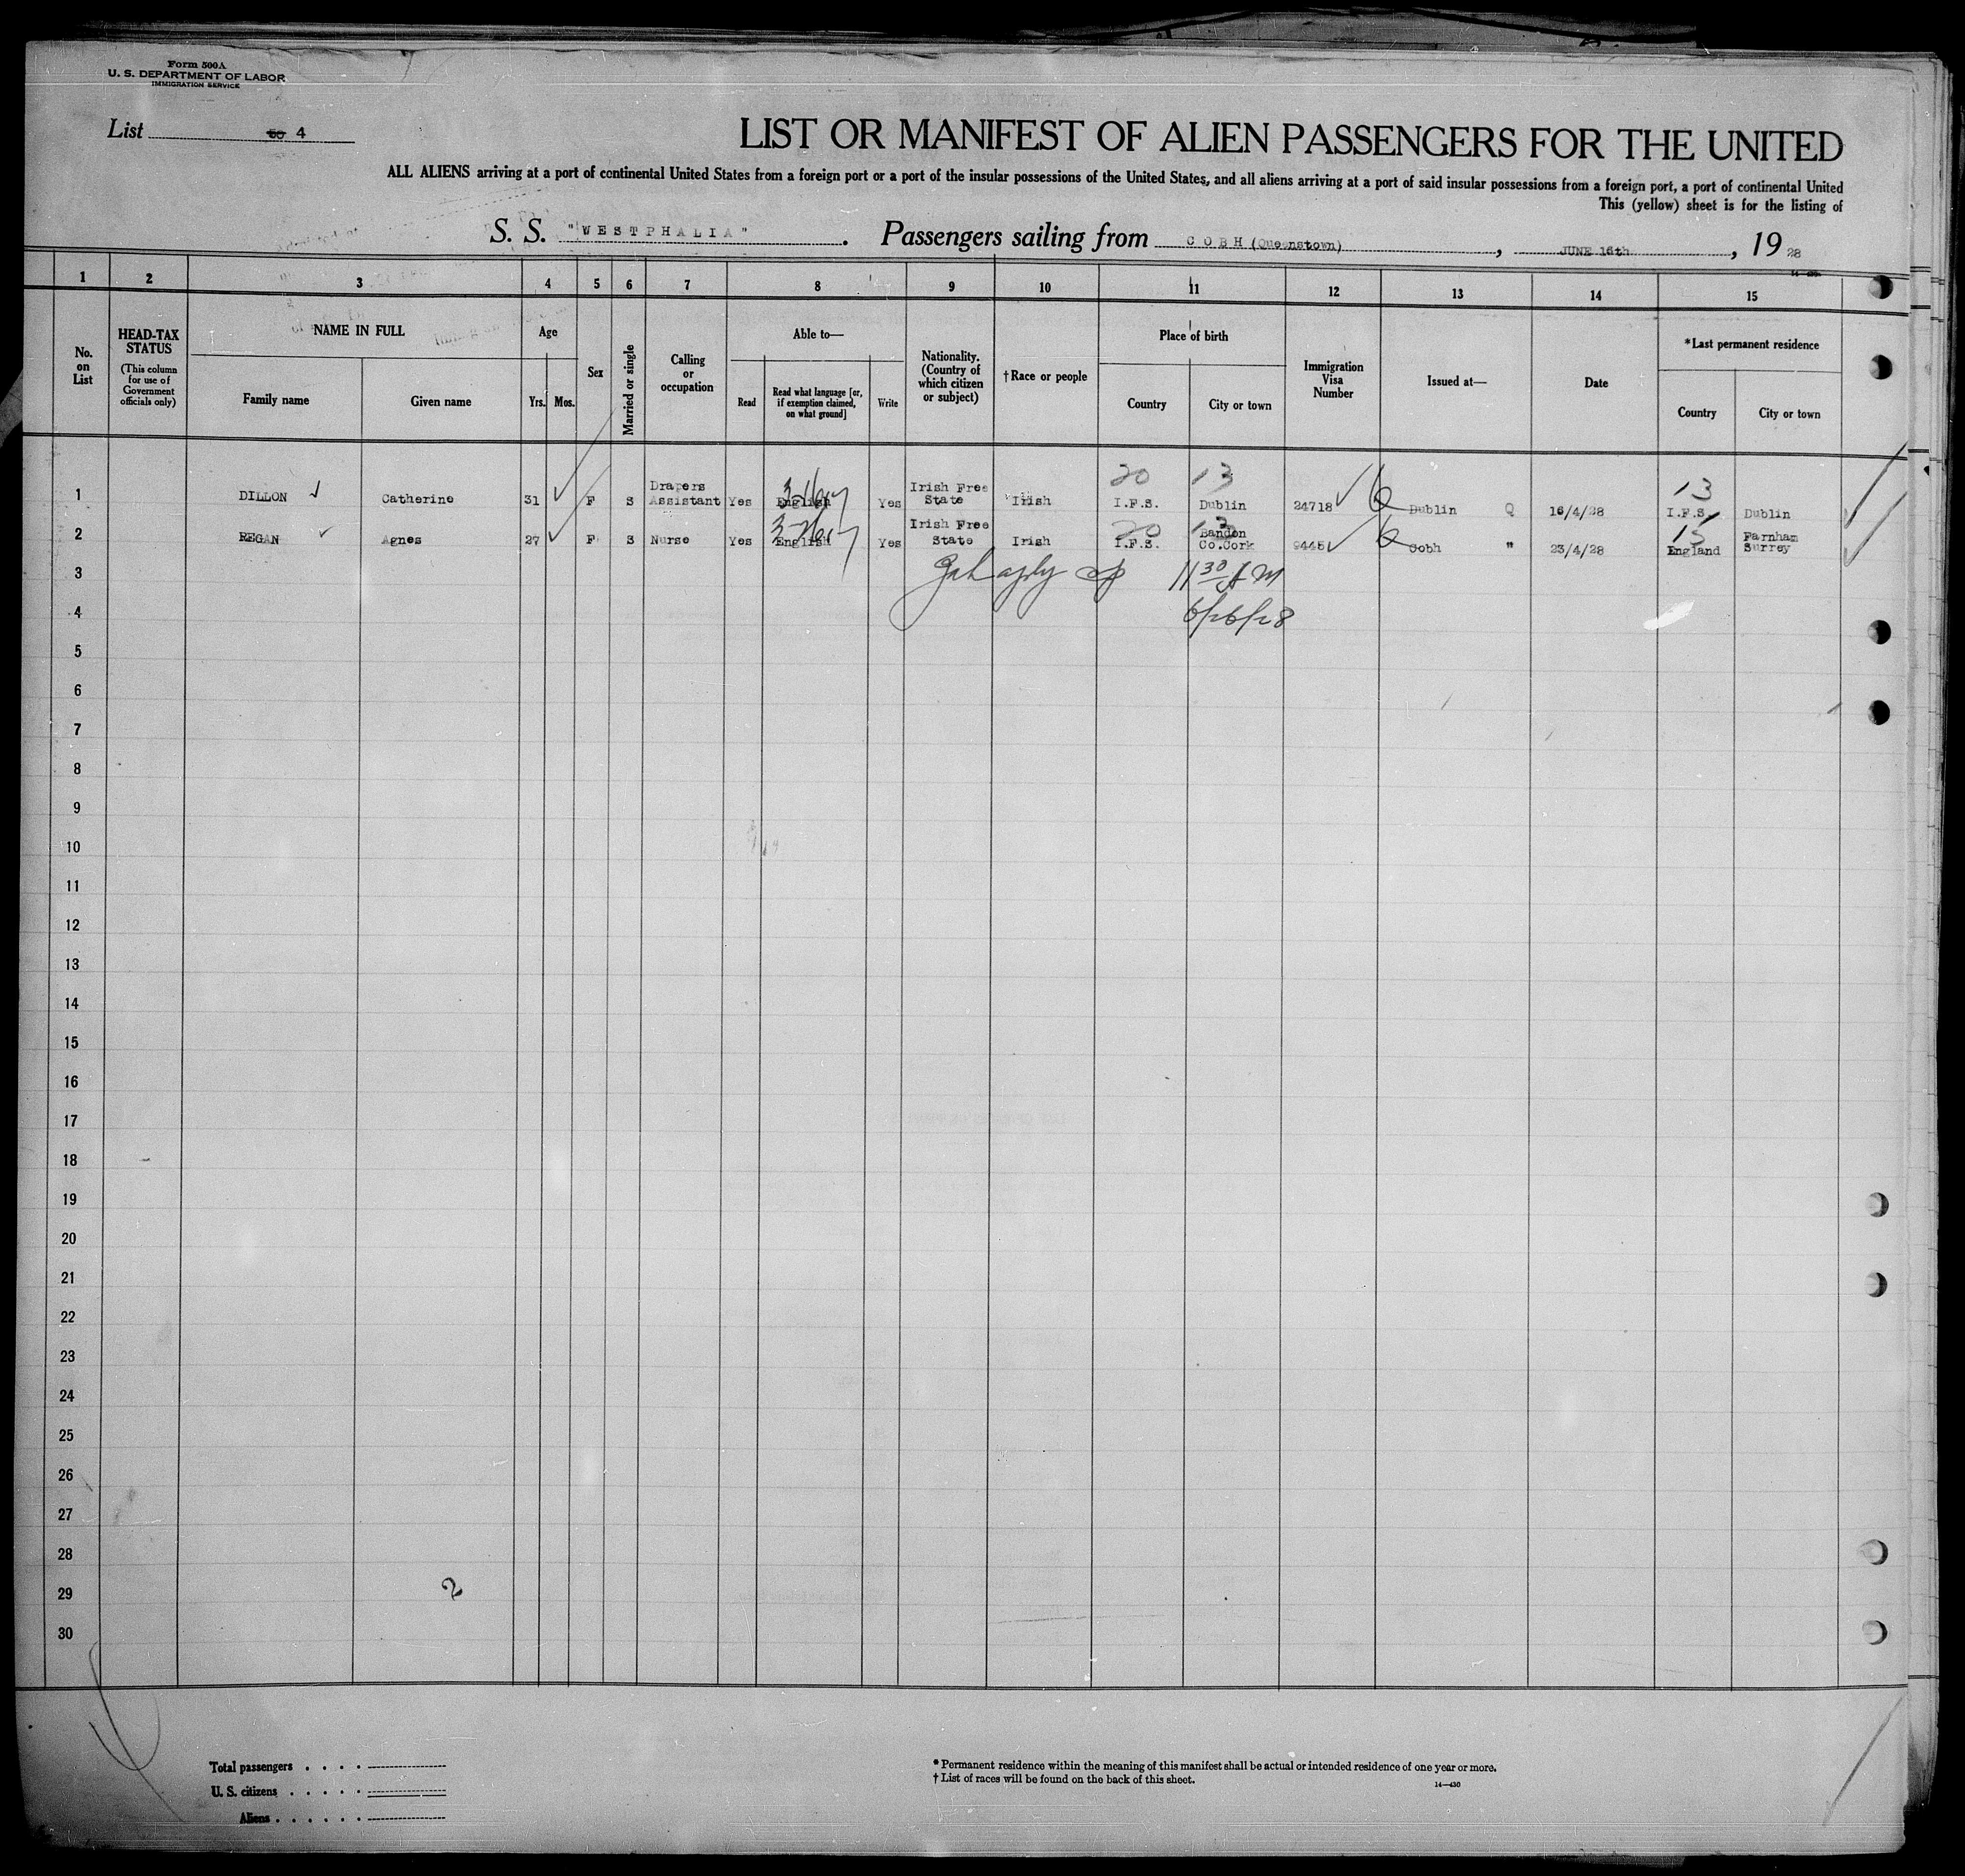 Form 500A
U. S. DEPARTMENT OF LABOR
IMMIGRATION SERVICE
List 4
LIST OR MANIFEST OF ALIEN PASSENGERS FOR THE UNITED
ALL ALIENS arriving at a port of continental United States from a foreign port or a port of the insular possessions of the United States, and all aliens arriving at a port of said insular possessions from a foreign port, a port of continental United
This (yellow) sheet is for the listing of
S. S. "WESTPHALIA". Passengers sailing from COBH (Queenstown), JUNE 16th, 1928
1 2 3 4 5 6 7 8 9 10 11 12 13 14 15
No. on List
HEAD-TAX STATUS
(This column for use of Government officials only)
NAME IN FULL
Family name
Given name
Age
Yrs. Mos.
Sex
Married or single
Calling or occupation
Able to—
Read
Read what language [or, if exemption claimed, on what ground]
Write
Nationality. (Country of which citizen or subject)
†Race or people
Place of birth
Country
City or town
Immigration Visa Number
Issued at—
Date
*Last permanent residence
Country
City or town
20 13 13
1 DILLON Catherine 31 F S Drapers Assistant Yes English Yes Irish Free State Irish I.F.S. Dublin 24718 Dublin Q 16/4/28 I.F.S. Dublin
20 13 15
2 REGAN Agnes 27 F S Nurse Yes English Yes Irish Free State Irish I.F.S. Bandon Co.Cork 9445 Cobh " 23/4/28 England Farnham Surrey
3 11 30 AM
4 6/26/28
5
6
7
8
9
10
11
12
13
14
15
16
17
18
19
20
21
22
23
24
25
26
27
28
29 2
30
Total passengers . . . .
U. S. citizens . . . . .
Aliens . . . . . .
* Permanent residence within the meaning of this manifest shall be actual or intended residence of one year or more.
† List of races will be found on the back of this sheet.
14—430